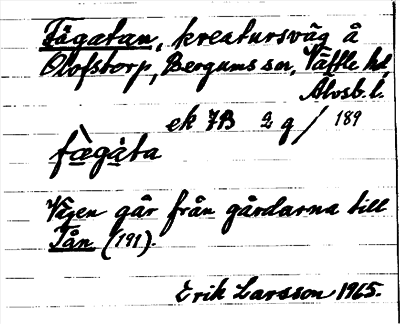 Fägatan, kreatursväg å
Olofstorp, Bergums sn, Vättle hd,
Älvsb. l.
ek 7B 2 g / 189
fæ̀gàta
Vägen går från gårdarna till
Tån (191).
Erik Larsson 1965.